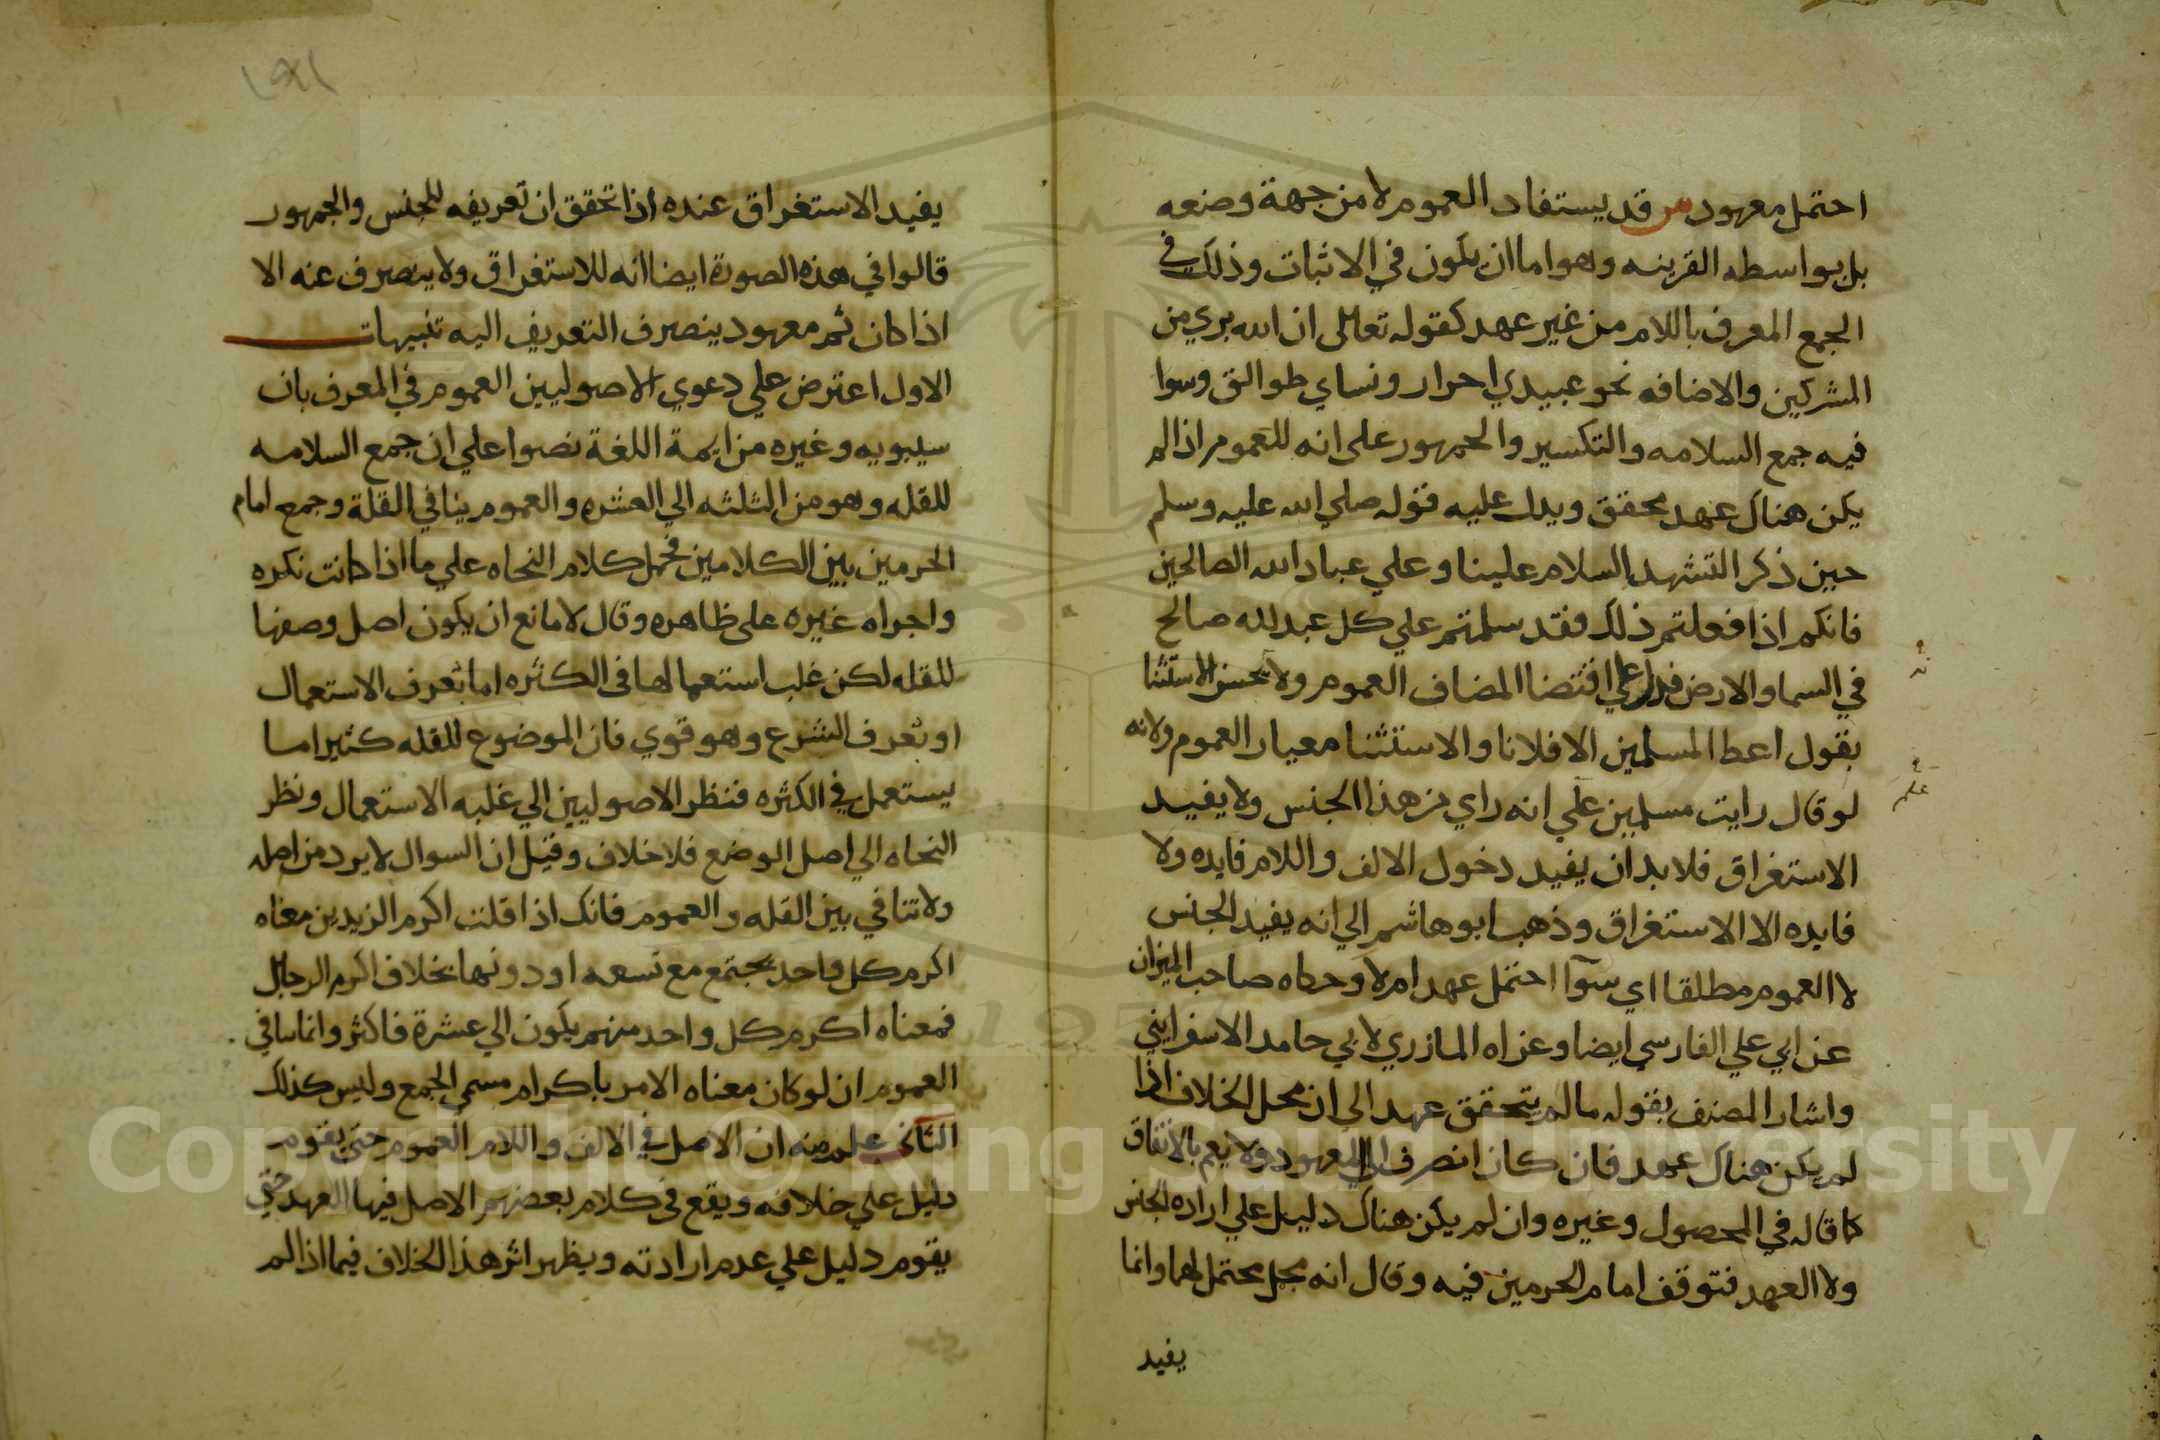 احتمل معهود س قد يستفاد العموم لا من جهة وضعه
بل بواسطه القرينه وهو اما ان يكون في الاثبات وذلك في
الجمع المعرف باللام من غير عهد كقوله تعالى ان الله بري من
المشركين والاضافه نحو عبيدي احرار ونساي طوالق وسوا
فيه جمع السلامه والتكسير والجمهور على انه للعموم اذا لم
يكن هناك عهد محقق ويدل عليه قوله صلي الله عليه وسلم
حين ذكر التشهد السلام علينا وعلي عباد الله الصالحين
فانكم اذا فعلتم ذلك فقد سلمتم علي كل عبد لله صالح
في السما والارض فدل علي اقتضا المضاف العموم ولا يحسن الاستثنا
بقول اعط المسلمين الا فلانا والاستثنا معيار العموم ولانه
لو قال رايت مسلمين علي انه راي من هذا الجنس ولا يفيد
الاستغراق فلا بد ان يفيد دخول الالف واللام فايده ولا
فايده الا الاستغراق وذهب ابو هاشم الي انه يفيد الجنس
لا العموم مطلقا اي سوآ احتمل عهد ام لا وحكاه صاحب الميزان
عن ابي علي الفارسي ايضا وعزاه المازري لابي حامد الاسفرايني
واشار المصنف بقوله ما لم يتحقق عهد الي ان محل الخلاف اذا
لم يكن هناك عهد فان كان انصرف الي المعهود ولا يعم بالاتفاق
كما قاله في المحصول وغيره وان لم يكن هناك دليل علي اراده الجنس
ولا العهد فتوقف امام الحرمين فيه وقال انه مجمل محتمل لهما وانما
يفيد
يفيد الاستغراق عنده اذا تحقق ان تعريفه للجنس والجمهور
قالوا في هذه الصورة ايضا انه للاستغراق ولا ينصرف عنه الا
اذا كان ثم معهود ينصرف التعريف اليه تنبيهات
الاول اعترض علي دعوي الاصوليين العموم في المعرف بان
سيبويه وغيره من ايمة اللغة نصوا علي ان جمع السلامه
للقله وهو من الثلثه الي العشره والعموم ينافي القلة وجمع امام
الحرمين بين الكلامين فحمل كلام النحاه علي ما اذا كانت نكره
واجراه غيره على ظاهره وقال لا مانع ان يكون اصل وصفها
للقله لكن غلب استعمالها في الكثره اما بعرف الاستعمال
او بعرف الشرع وهو قوي فان الموضوع للقله كثيرا ما
يستعمل في الكثره فنظر الاصوليين الي غلبه الاستعمال ونظر
النحاه الي اصل الوضع فلا خلاف وقيل ان السوال لا يرد من اصله
ولا تنافي بين القله والعموم فانك اذا قلت اكرم الزيدين معناه
اكرم كل واحد يجتمع مع تسعه او دونها بخلاف اكرم الرجال
فمعناه اكرم كل واحد منهم يكون الي عشرة فاكثر وانما ينافي
العموم ان لو كان معناه الامر باكرام مسمي الجمع وليس كذلك
الثاني علم منه ان الاصل في الالف واللام العموم حتي يقوم
دليل علي خلافه ويقع في كلام بعضهم الاصل فيها العهد حتي
يقوم دليل علي عدم ارادته ويظهر اثر هذا الخلاف فيما اذا لم
Copyright © King Saud University